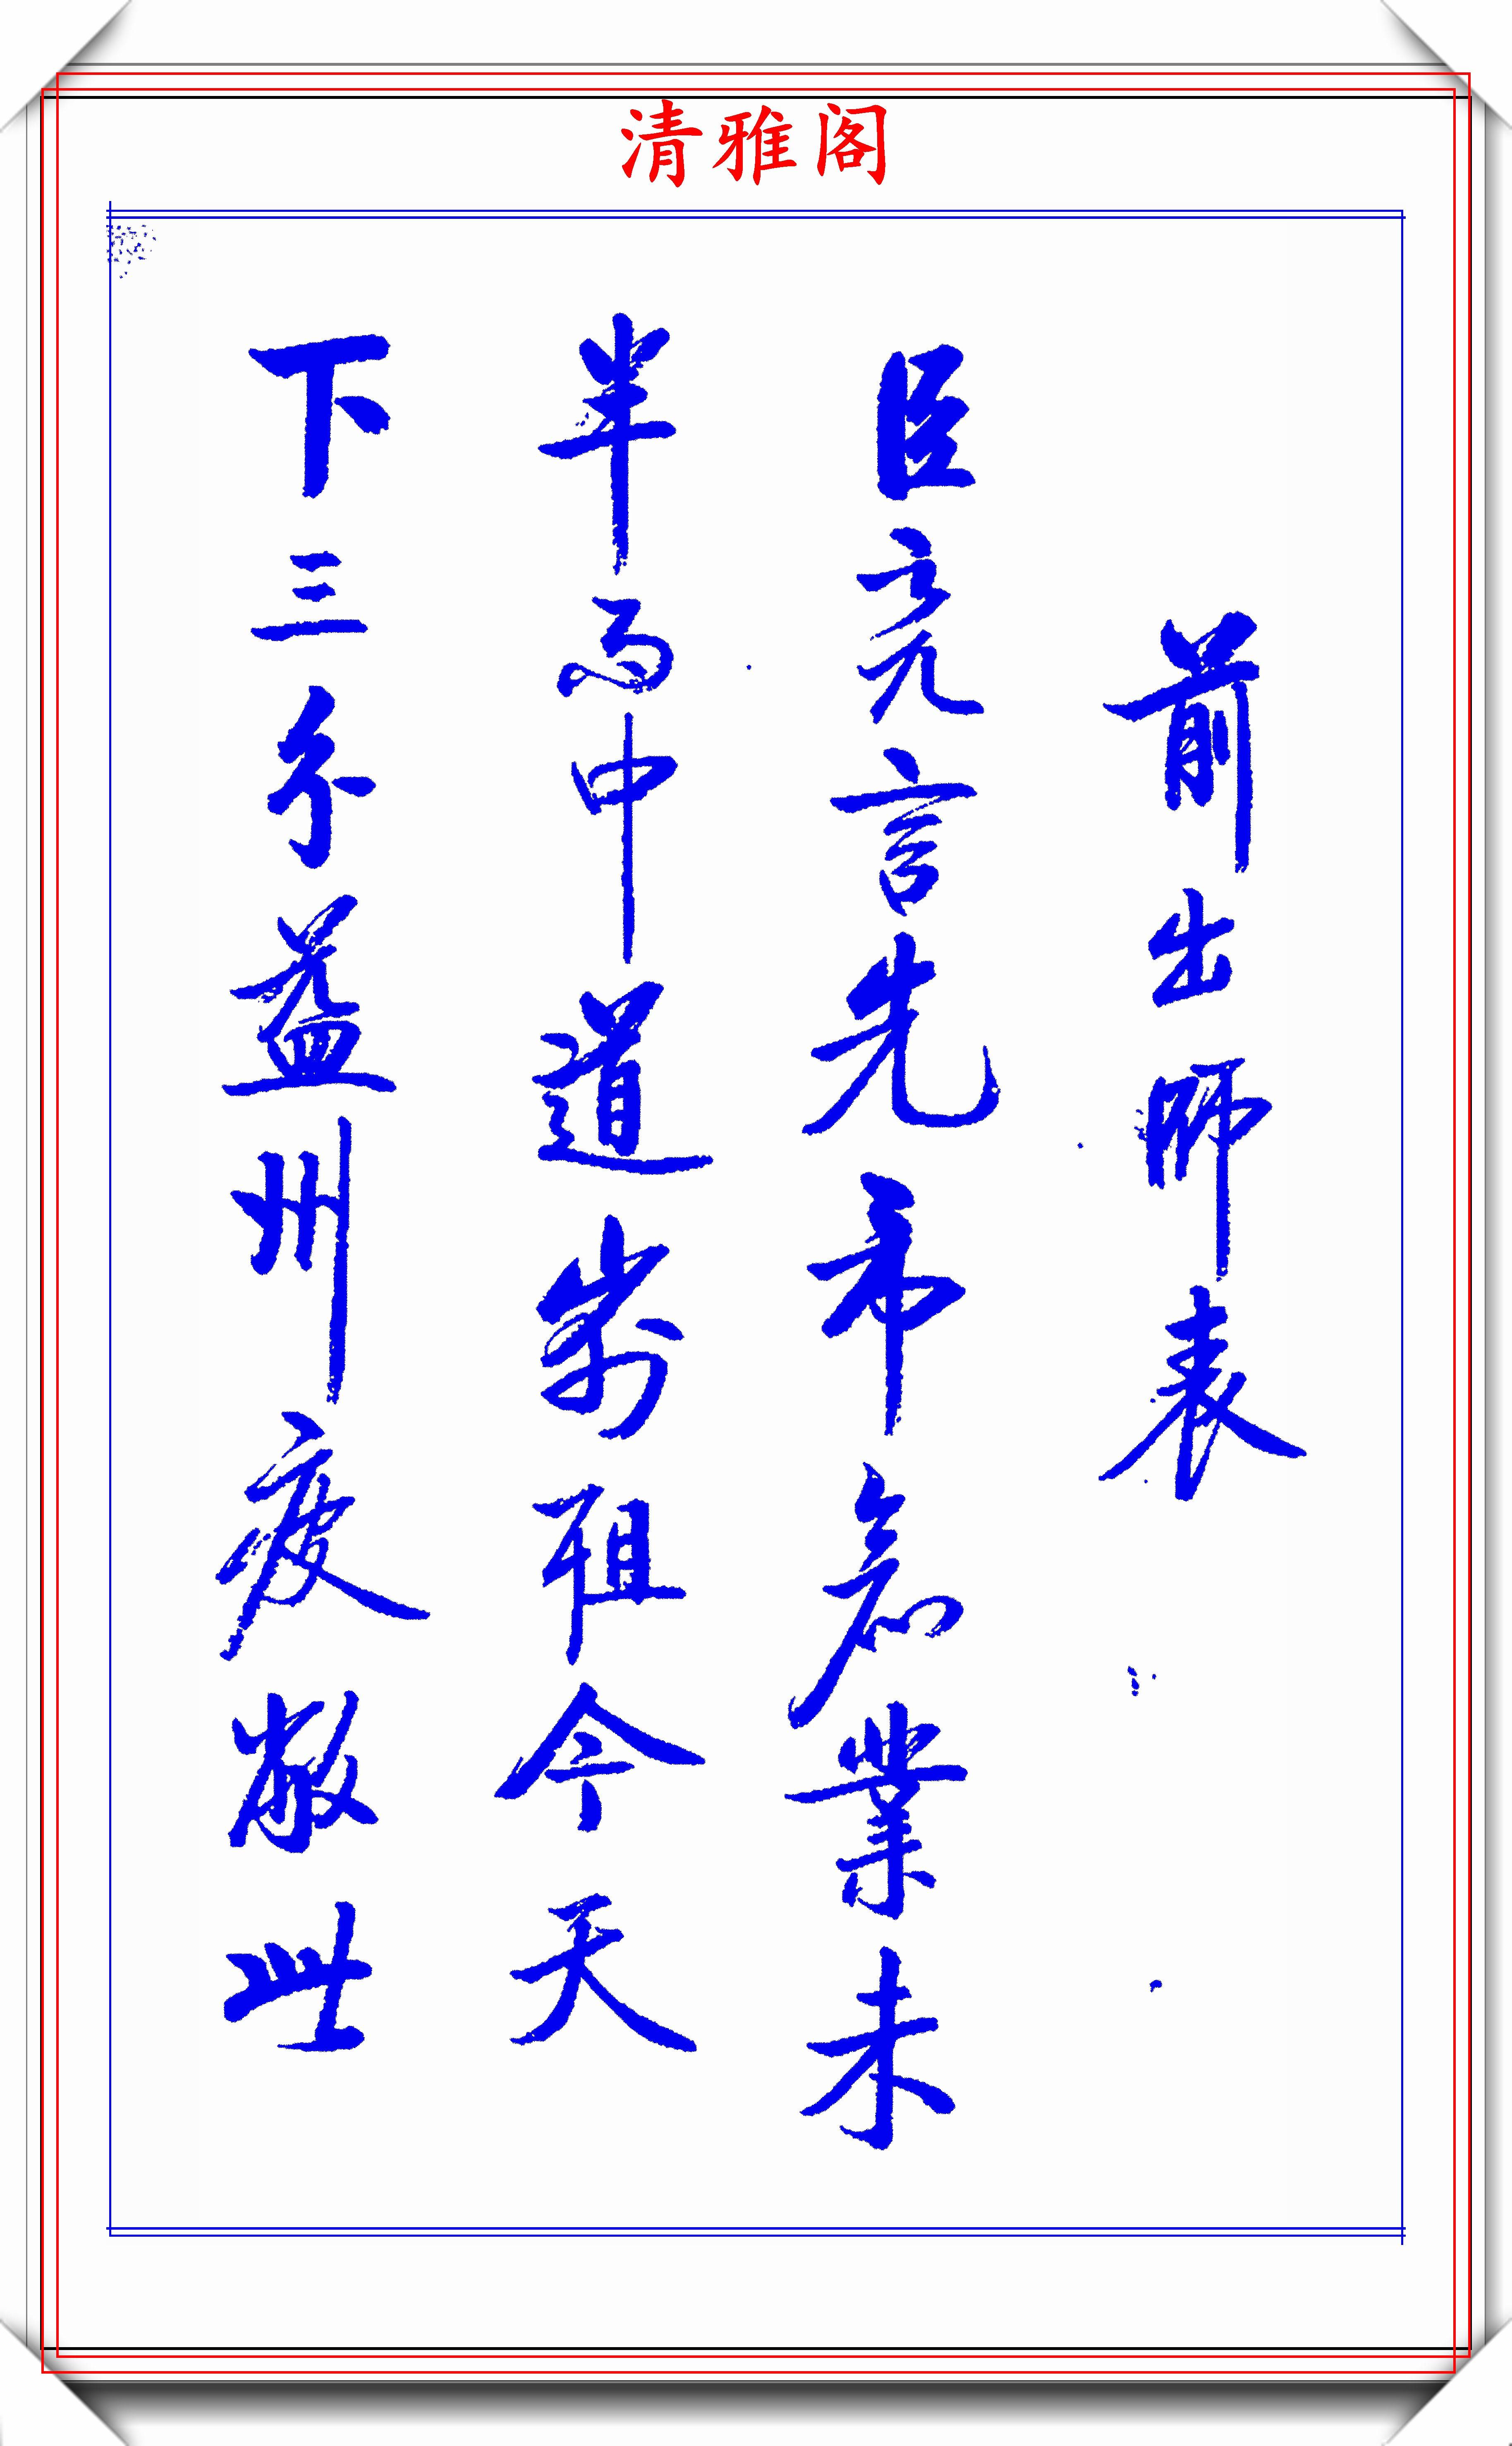 清雅阁
前出師表
臣亮言先帝創業未
半而中道崩殂今天
下三分益州疲敝此